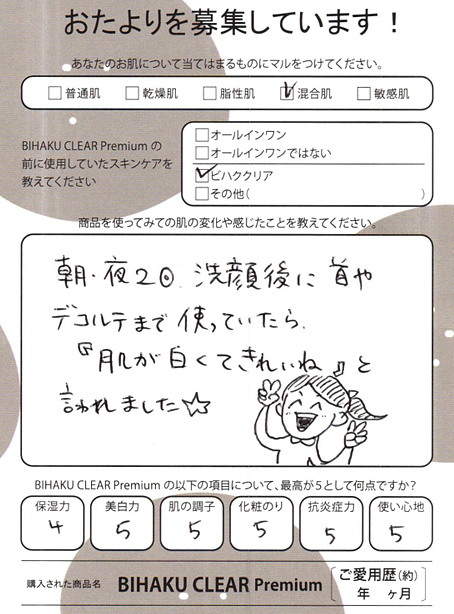 おたよりを募集しています！
あなたのお肌について当てはまるものにマルをつけてください。
普通肌 乾燥肌 脂性肌 混合肌 敏感肌
BIHAKU CLEAR Premium の
前に使用していたスキンケアを
教えてください
オールインワン
オールインワンではない
ビハククリア
その他( )
商品を使ってみての肌の変化や感じたことを教えてください。
朝・夜2回、洗顔後に首や
デコルテまで使っていたら、
『肌が白くてきれいね』と
言われました☆
BIHAKU CLEAR Premium の以下の項目について、最高が５として何点ですか？
保湿力 美白力 肌の調子 化粧のり 抗炎症力 使い心地
4 5 5 5 5 5
購入された商品名 BIHAKU CLEAR Premium
ご愛用歴(約)
年 ヶ月